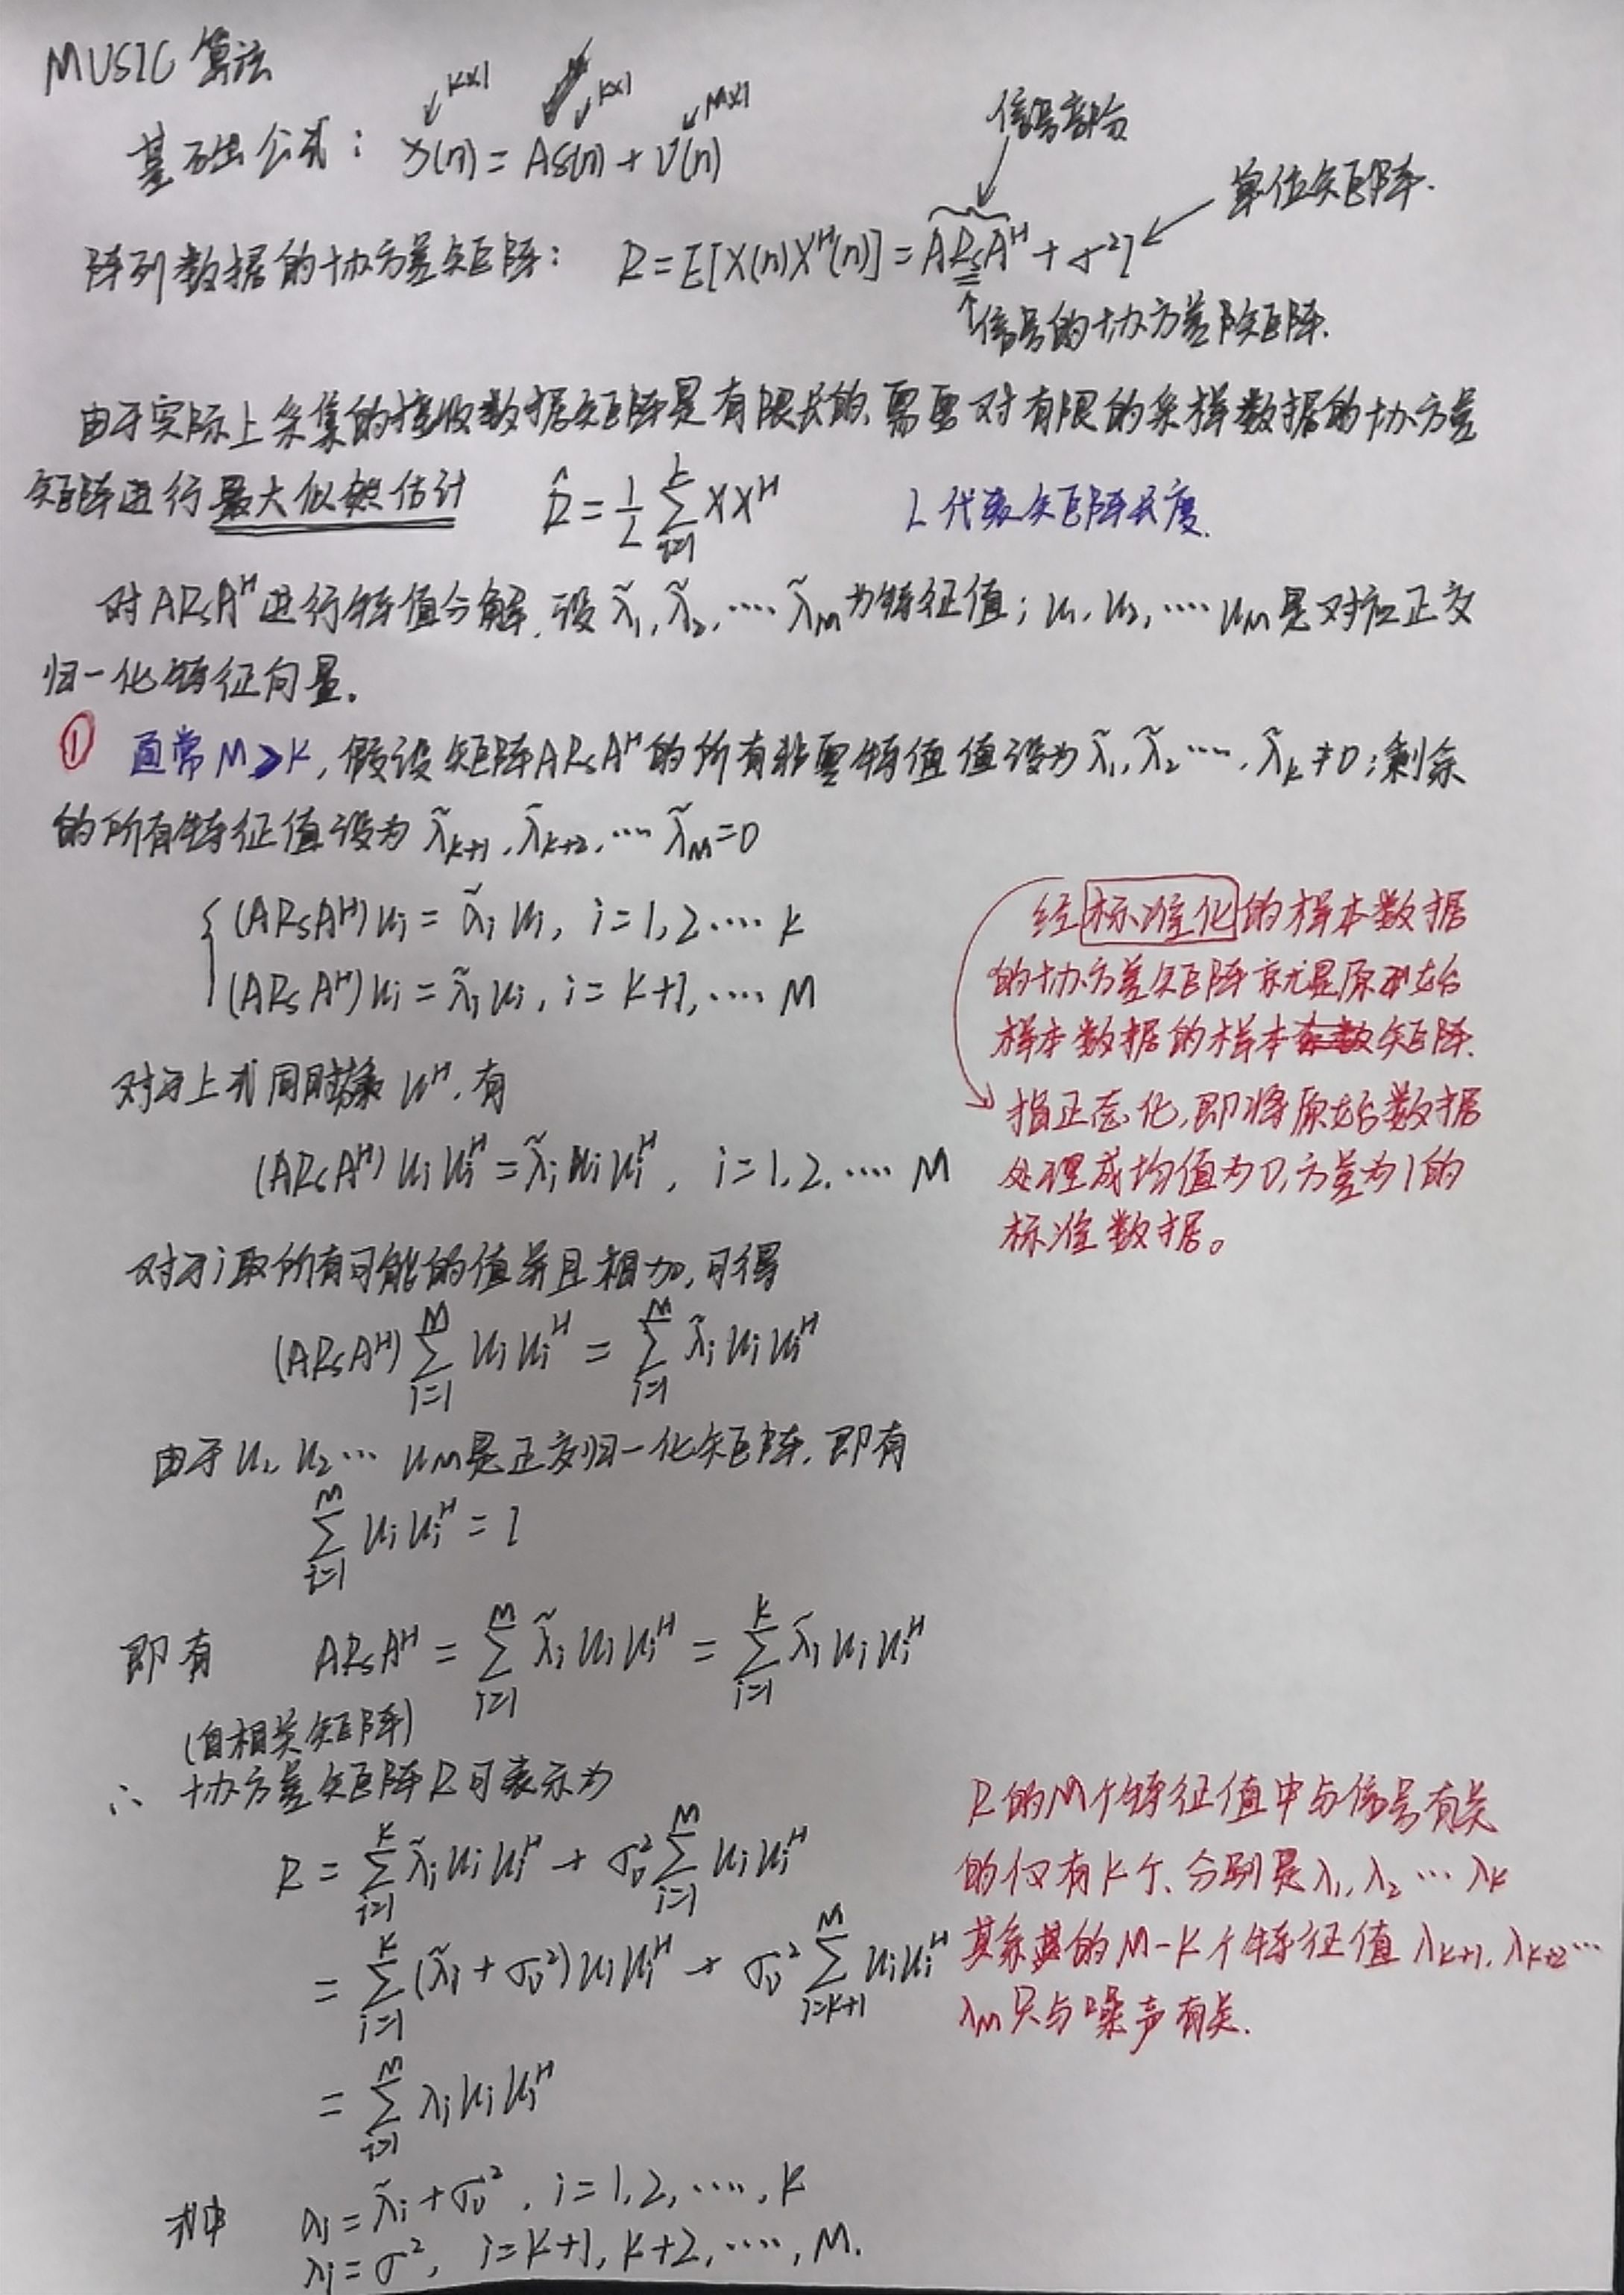 MUSIC 算法
↙K×1 ↙K×1 ↙M×1
基础公式： X(n) = AS(n) + V(n)
信号部分
单位矩阵.
阵列数据的协方差矩阵： R = E[X(n)X^H(n)] = AR_sA^H + σ²I
↑信号的协方差矩阵.
由于实际上采集的接收数据矩阵是有限长的、需要对有限的采样数据的协方差
矩阵进行最大似然估计 R̂ = 1/L ∑_{i=1}^{L} XX^H L代表矩阵长度.
对AR_sA^H进行特值分解, 设 λ̃₁, λ̃₂, ···· λ̃_M为特征值; u₁, u₂, ···· u_M是对应正交
归一化特征向量.
① 通常M>K, 假设矩阵AR_sA^H的所有非零特值值设为 λ̃₁, λ̃₂ ···, λ̃_K ≠ 0; 剩余
的所有特征值设为 λ̃_{K+1}, λ̃_{K+2}, ··· λ̃_M = 0
{ (AR_sA^H)u_i = λ̃_i u_i, i = 1, 2 ···· K
(AR_sA^H)u_i = λ̃_i u_i, i = K+1, ···· M
经标准化的样本数据
的协方差矩阵就是原始
样本数据的样本矩阵.
对于上式同时乘 u^H, 有
指正态化, 即将原始数据
处理成均值为0, 方差为1的
标准数据。
(AR_sA^H) u_i u_i^H = λ̃_i u_i u_i^H, i = 1, 2, ···· M
对于i取所有可能的值并且相加, 可得
(AR_sA^H) ∑_{i=1}^{M} u_i u_i^H = ∑_{i=1}^{M} λ̃_i u_i u_i^H
由于 u₁, u₂ ··· u_M是正交归一化矩阵, 即有
∑_{i=1}^{M} u_i u_i^H = I
即有 AR_sA^H = ∑_{i=1}^{M} λ̃_i u_i u_i^H = ∑_{i=1}^{K} λ̃_i u_i u_i^H
(自相关矩阵)
∴ 协方差矩阵R可表示为
R = ∑_{i=1}^{K} λ̃_i u_i u_i^H + σ_v² ∑_{i=1}^{M} u_i u_i^H
= ∑_{i=1}^{K} (λ̃_i + σ_v²) u_i u_i^H + σ_v² ∑_{i=K+1}^{M} u_i u_i^H
= ∑_{i=1}^{M} λ_i u_i u_i^H
R的M个特征值中与信号有关
的仅有K个、分别是 λ₁, λ₂ ··· λ_K
其余的M-K个特征值 λ_{K+1}, λ_{K+2} ···
λ_M只与噪声有关.
λ_i = λ̃_i + σ_v², i = 1, 2, ····, K
λ_i = σ², i = K+1, K+2, ····, M.